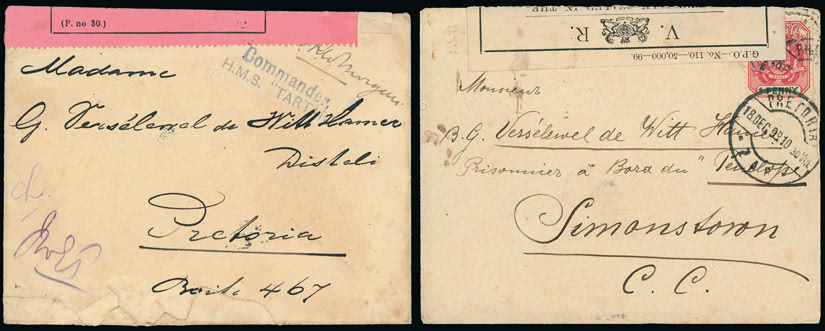 (P. no 30)
Commander,
H.M.S. "TART
Madame
G. Versélewel de Witt Hamer
Disteli
Pretoria
Boite 467
IN THE
V. R.
G.P.O.—No. 110.—50,000—99.
1 PENNY
PRETORIA
18 DEC 99 10
Monsieur
B. G. Versélewel de Witt Hamer
Prisonnier à Bord du "Penelope"
Simonstown
C. C.